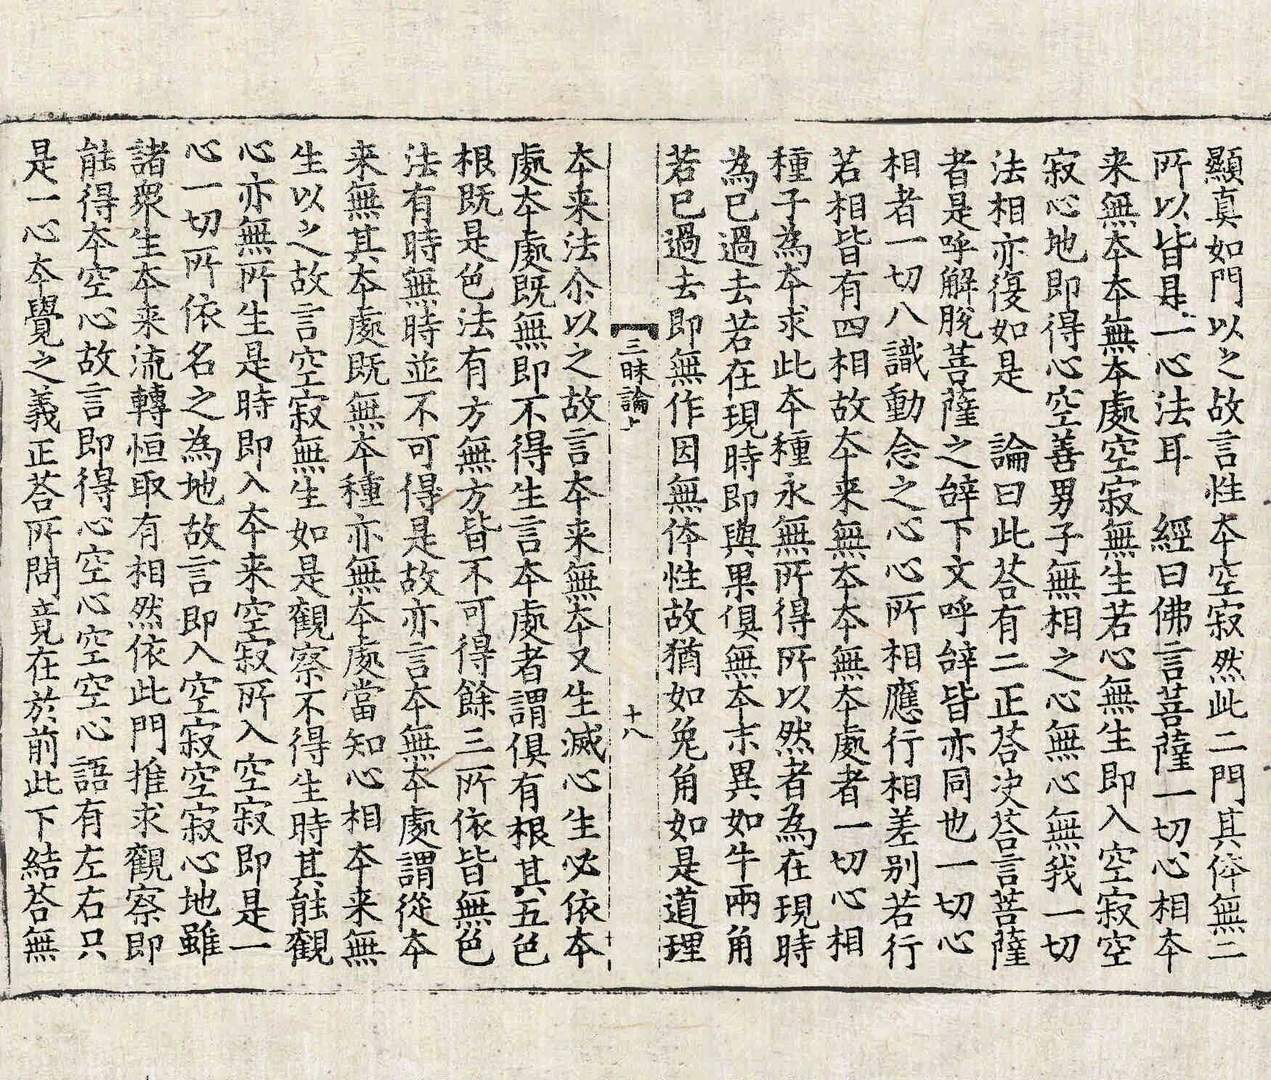 顯真如門以之故言性夲空寂然此二門其体無二
所以皆是一心法耳　經曰佛言菩薩一切心相夲
来無夲夲無夲處空寂無生若心無生即入空寂空
寂心地即得心空善男子無相之心無心無我一切
法相亦復如是　論曰此荅有二正荅决荅言菩薩
者是呼解脫菩薩之辝下文呼辝皆亦同也一切心
相者一切八識動念之心心所相應行相差别若行
若相皆有四相故夲来無夲夲無夲處者一切心相
種子為夲求此夲種永無所得所以然者為在現時
為已過去若在現時即與果俱無夲末異如牛兩角
若已過去即無作因無体性故猶如兎角如是道理
三昧論上　十八
夲来法尒以之故言夲来無夲又生滅心生必依夲
處夲處既無即不得生言夲處者謂俱有根其五色
根既是色法有方無方皆不可得餘三所依皆無色
法有時無時並不可得是故亦言夲無夲處謂從夲
来無其夲處既無夲種亦無夲處當知心相夲来無
生以之故言空寂無生如是觀察不得生時其能觀
心亦無所生是時即入夲来空寂所入空寂即是一
心一切所依名之為地故言即入空寂空寂心地雖
諸衆生夲来流轉恒取有相然依此門推求觀察即
能得夲空心故言即得心空心空空心語有左右只
是一心夲覺之義正荅所問竟在於前此下結荅無